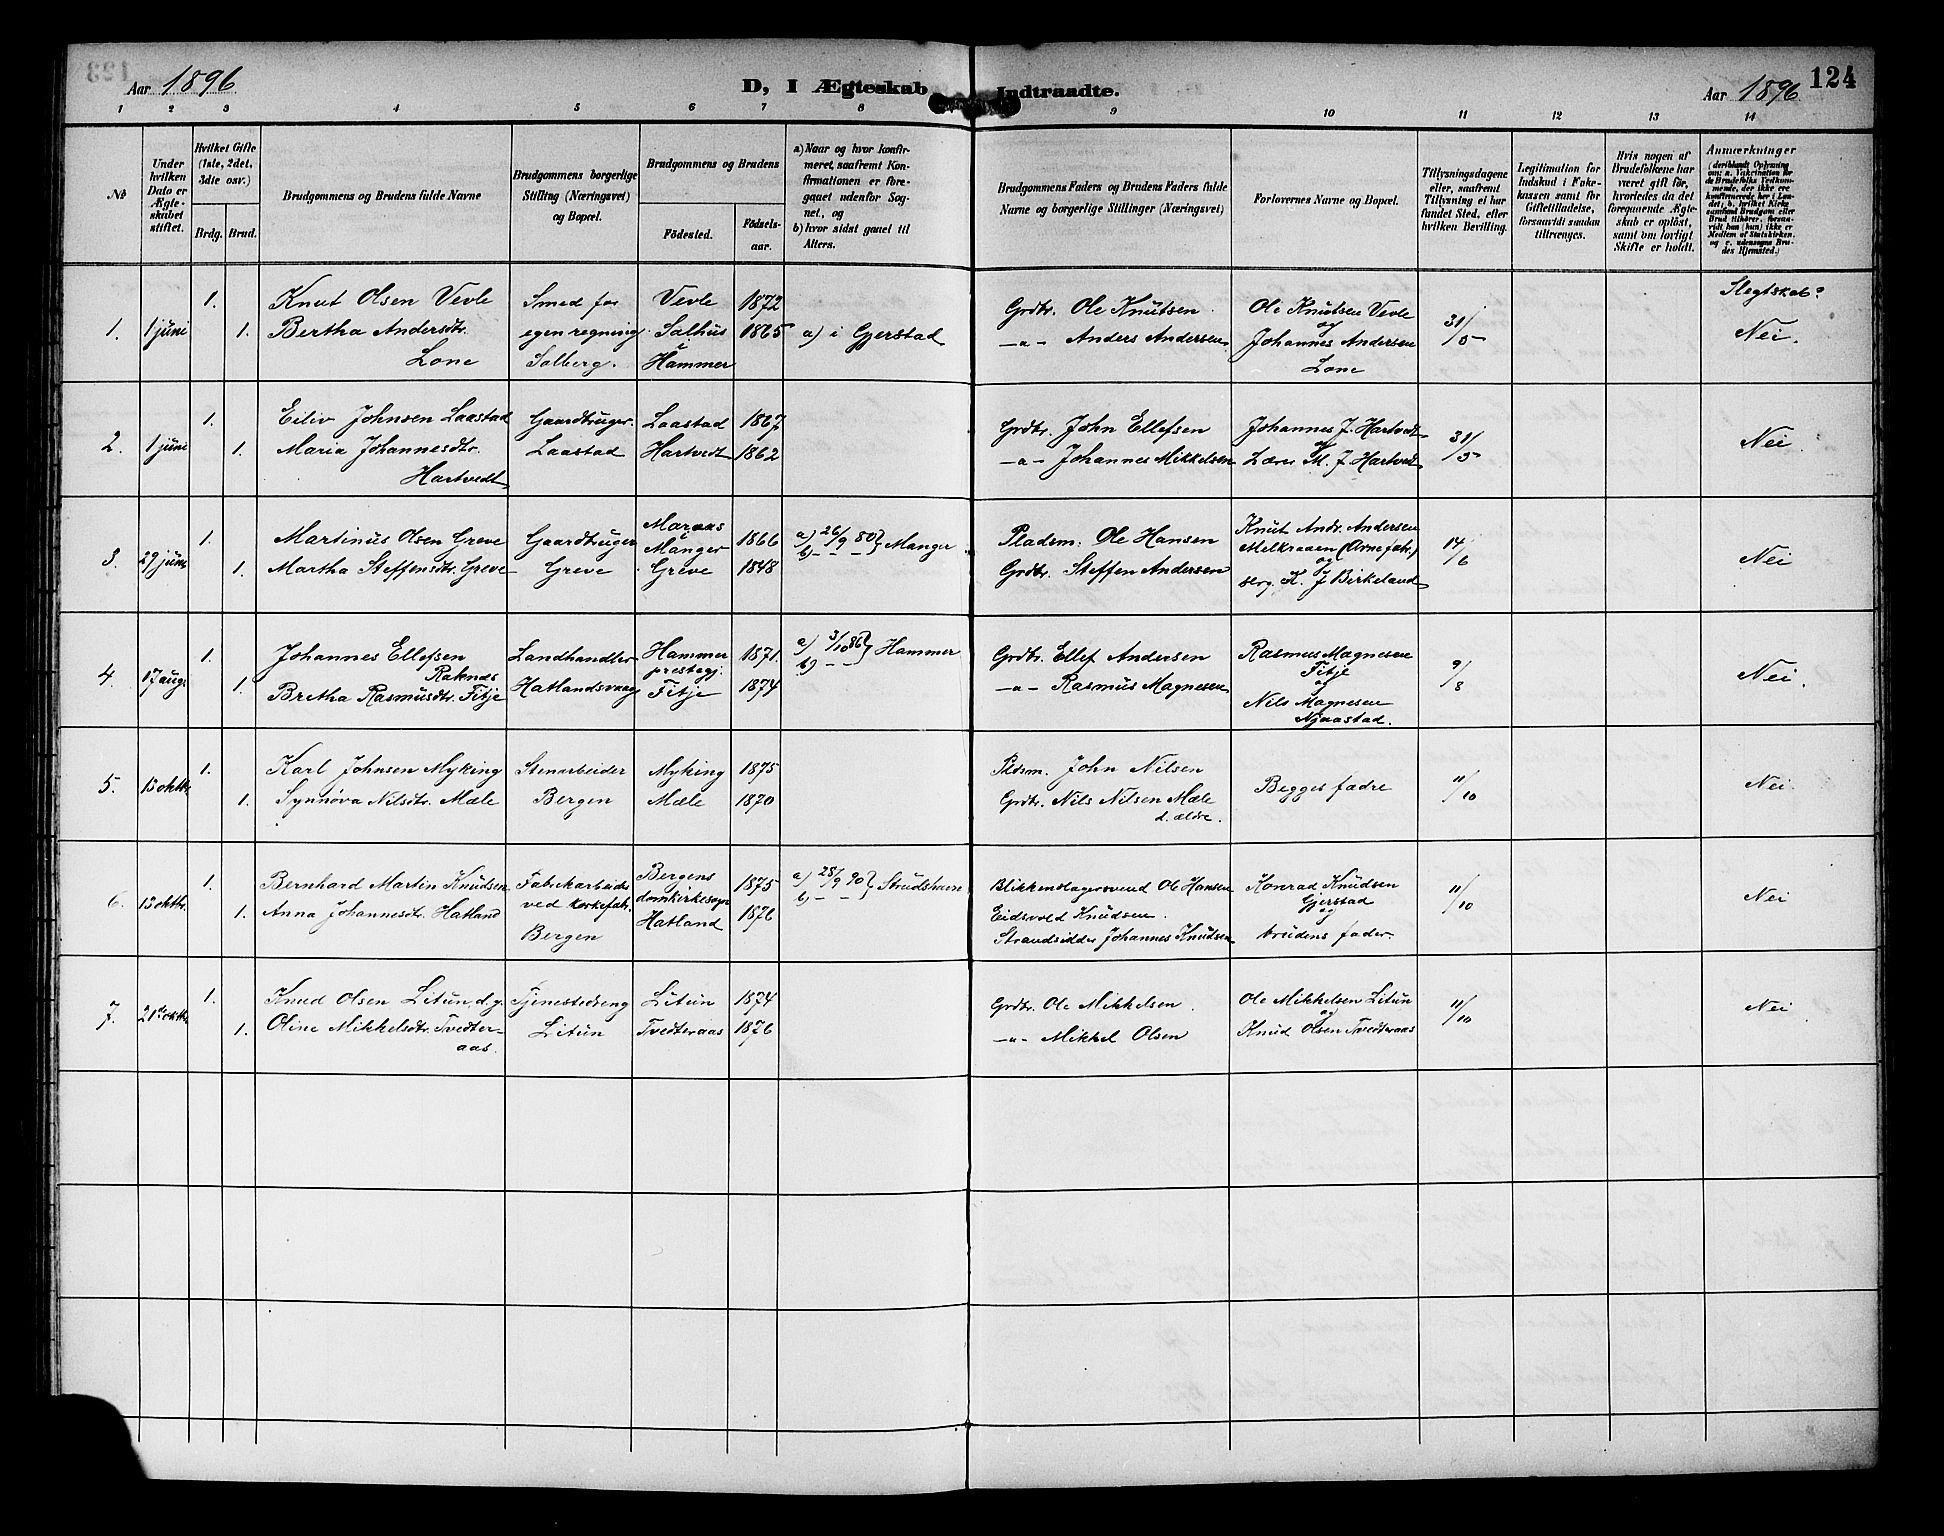 Aar 1896
D, I Ægteskab Indtraadte.
Aar 1896.
124
1 2 3 4 5 6 7 8 9 10 11 12 13 14
No
Under hvilken Dato er Ægteskabet stiftet.
Hvilket Gifte (1ste, 2det, 3die osv.)
Brdg. Brud.
Brudgommens og Brudens fulde Navne
Brudgommens borgerlige Stilling (Næringsvei) og Bopæl.
Brudgommens og Brudens
Födested.
Födselsaar.
a) Naar og hvor konfirmeret, saafremt Konfirmationen er foregaaet udenfor Sognet, og
b) hvor sidst gaaet til Alters.
Brudgommens Faders og Brudens Faders fulde Navne og borgerlige Stillinger (Næringsvei)
Forlovernes Navne og Bopæl.
Tillysningsdagene eller, saafremt Tillysning ei har fundet Sted, efter hvilken Bevilling.
Legitimation for Indskud i Enkekassen samt for Giftetilladelse, forsaavidt saadan tiltrænges.
Hvis nogen af Brudefolkene har været gift før, hvorledes da det foregaaende Ægteskab er opløst, samt om lovligt Skifte er holdt.
Anmærkninger
(deriblandt Oplysning om: a. Vaccination for de Brudefolks Vedkommende, der ikke ere konfirmerede her i Landet; b. hvilket Kirkesamfund Brudgom eller Brud tilhører, forsaavidt han (hun) ikke er Medlem af Statskirken, og c. udensogns Brudes Hjemsted.)
1. 1 juni 1. Knut Olsen Vevle Smed for Vevle 1872 Grdbr. Ole Knutsen Ole Knutsen Vevle Slegtskab?
1. Bertha Andersdtr. egen regning Salhus 1865 a) i Gjerstad —"— Anders Andersen og Johannes Andersen 31/5 Nei.
Lone Solberg. Hammer Lone
2. 1 juni 1. Eiliv Johnsen Laastad Gaardbruger Laastad 1867 Grdbr. John Ellefsen Johannes J. Hartvedt
1. Maria Johannesdtr. Laastad Hartvedt 1862 —"— Johannes Mikkelsen og Lærer M. J. Hartvedt 31/5 Nei
Hartvedt
3. 29 juni 1. Martinus Olsen Greve Gaardbruger Maraas Manger 1866 a) 26/9 80 } Manger Pladsm. Ole Hansen Knut Andr. Andersen
Melkraaen (Arnefabr.)
1. Martha Steffensdtr. Greve Greve Greve 1848 b) — — Grdbr. Steffen Andersen og serg. K. J Birkeland 14/6 Nei
4. 17 aug. 1. Johannes Ellefsen Landhandler Hammer 1871. a) 3/10 86 } Hammer Grdbr. Ellef Andersen Rasmus Magnesen
Raknæs prestegj. b) — — Fitje
1. Bretha Rasmusdtr. Fitje Hatlandsvaag Fitje 1874 —"— Rasmus Magnesen og Nils Magnesen 9/8 Nei.
Njaastad.
5. 15 oktbr. 1. Karl Johnsen Myking Stenarbeider Myking 1875 Pladsm. John Nilsen
1. Synnøva Nilsdtr. Mæle Bergen Mæle 1870 Grdbr. Nils Nilsen Mæle d. ældre. Begges fædre 11/10 Nei.
6. 15 oktbr. 1. Bernhard Martin Knudsen Fabrikarbeider Bergens 1875 a) 28/9 90 } Strudshavn Blikkenslagersvend Ole Hansen Konrad Knudsen
ved korkefabr. domkirkesogn b) — — Eidsvold Knudsen. Gjerstad
1. Anna Johannesdtr. Hatland Bergen Hatland 1876 Strandsidder Johannes Knudsen og brudens fader. 11/10 Nei
7. 21de oktbr 1. Knud Olsen Litun, d.y. Tjenestedreng Litun 1874 Grdbr. Ole Mikkelsen. Ole Mikkelsen Litun
1. Oline Mikkelsdtr. Tvedteraas. Litun Tvedteraas 1876 —"— Mikkel Olsen og Knud Olsen Tvedteraas 11/10 Nei